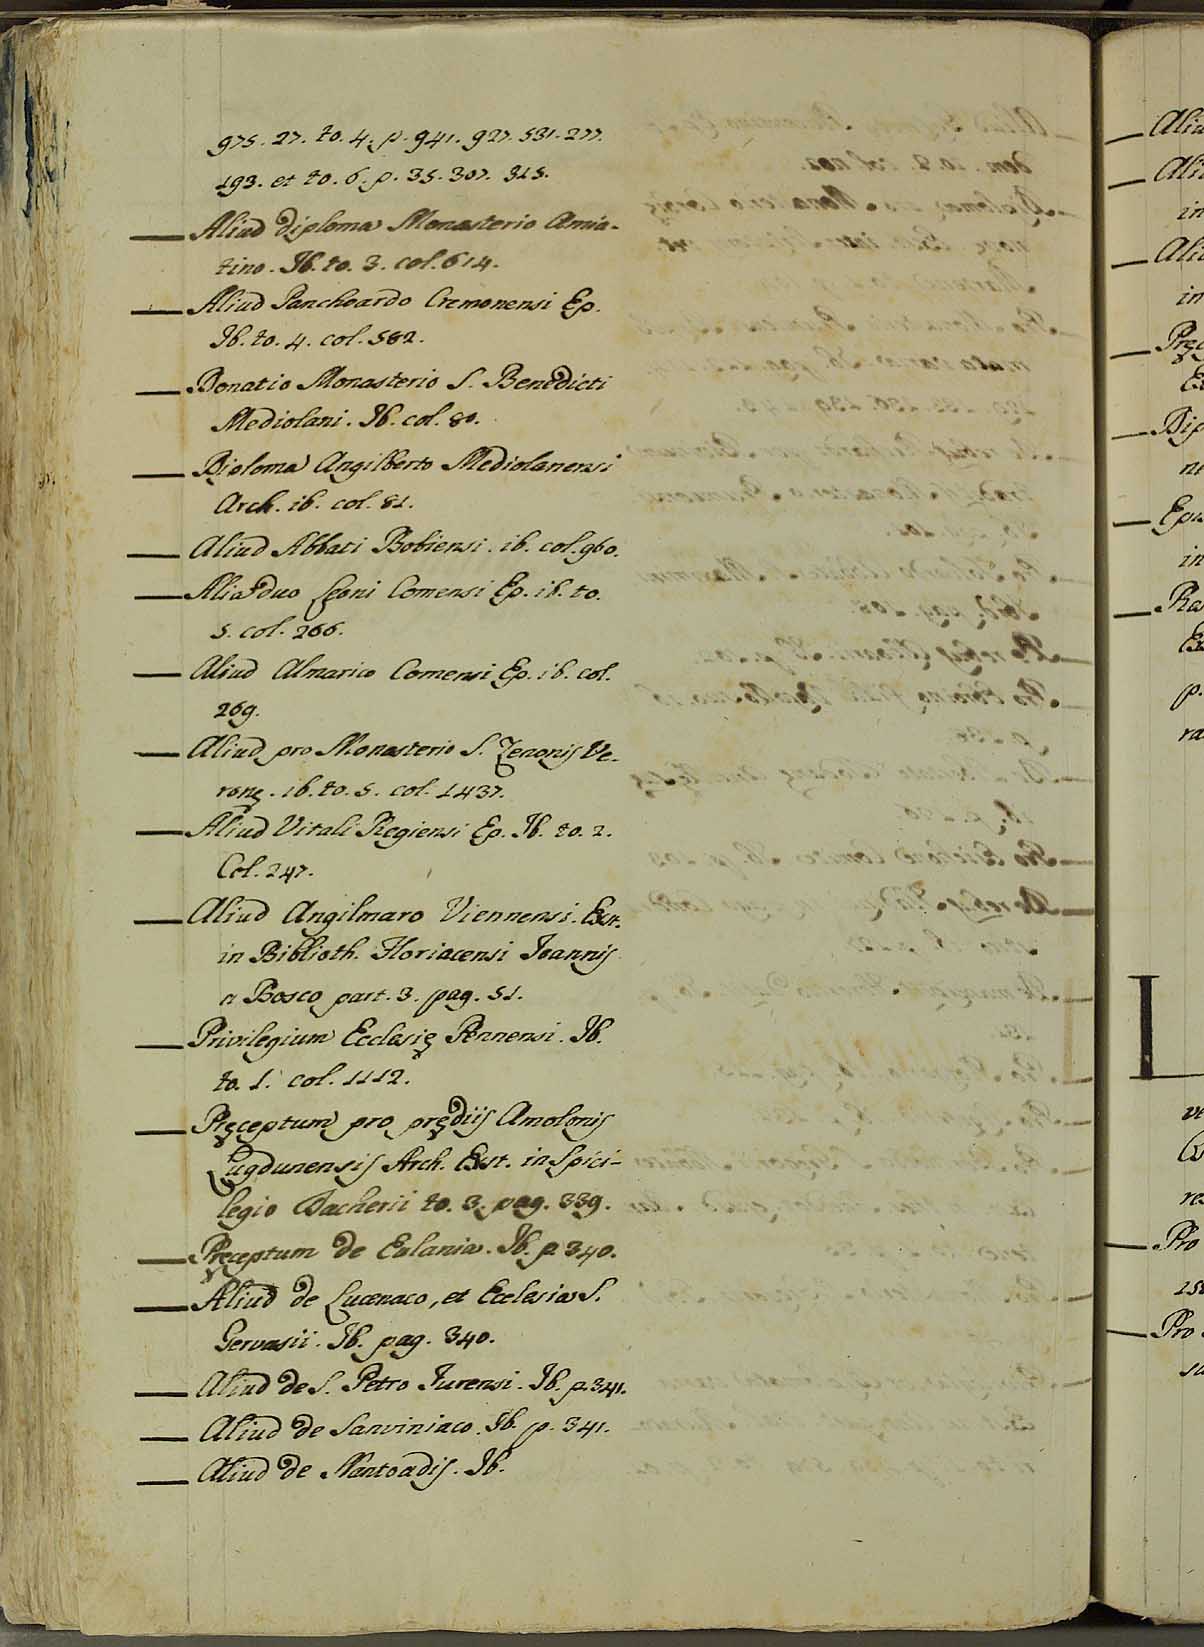 975. 27. to. 4. p. 941. 927. 531. 277.
193. et to. 6. p. 35. 307. 315.
— Aliud diploma Monasterio Amia-
tino. Ib. to. 3. col. 614.
— Aliud Pancheardo Cremonensi Ep.
Ib. to. 4. col. 582.
— Donatio Monasterio S. Benedicti
Mediolani. Ib. col. 80.
— Diploma Angilberto Mediolanensi
Arch. ib. col. 81.
— Aliud Abbati Bobiensi. ib. col. 960.
— Alia duo Leoni Comensi Ep. ib. to.
5. col. 266.
— Aliud Almarico Comensi Ep. ib. col.
269.
— Aliud pro Monasterio S. Zenonis Ve-
ronę. ib. to. 5. col. 1437.
— Aliud Vitali Regiensi Ep. Ib. to. 2.
Col. 247.
— Aliud Angilmaro Viennensi. Ext.
in Biblioth. Floriacensi Joannis
a Bosco part. 3. pag. 51.
— Privilegium Ecclesię Pennensi. Ib.
to. 1. col. 1112.
— Pręceptum pro prędiis Amolonis
Lugdunensis Arch. Ext. in Spici-
legio Dacherii to. 3. pag. 339.
— Pręceptum de Eulania. Ib. p. 340.
— Aliud de Lucenaco, et Ecclesia S.
Gervasii. Ib. pag. 340.
— Aliud de S. Petro Jurensi. Ib. p. 341.
— Aliud de Sarviniaco. Ib. p. 341.
— Aliud de Nantoadis. Ib.